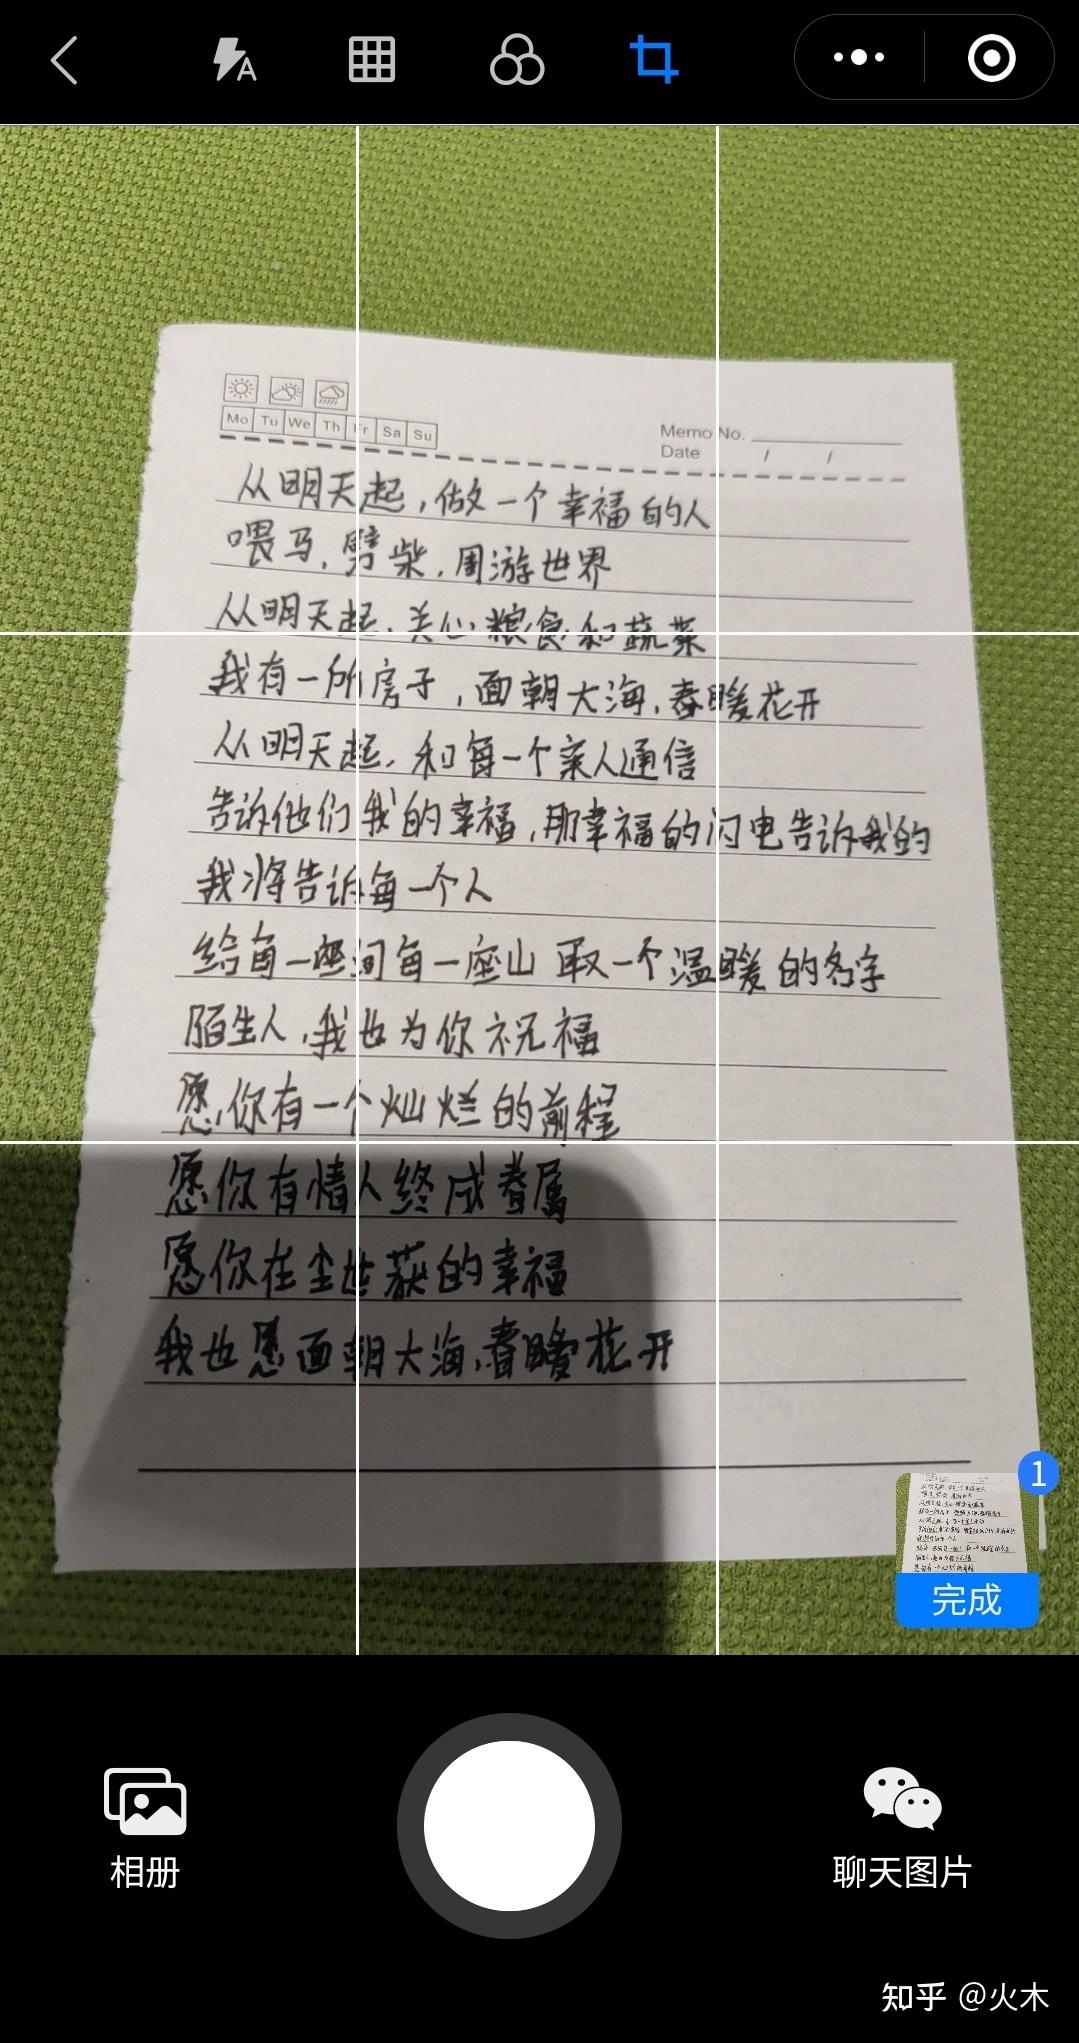 A
Mo Tu We Th Fr Sa Su
Memo No.
Date / /
从明天起,做一个幸福的人
喂马,劈柴,周游世界
从明天起,关心粮食和蔬菜
我有一所房子,面朝大海,春暖花开
从明天起,和每一个亲人通信
告诉他们我的幸福,那幸福的闪电告诉我的
我将告诉每一个人
给每一座河每一座山 取一个温暖的名字
陌生人,我也为你祝福
愿你有一个灿烂的前程
愿你有情人终成眷属
愿你在尘世获的幸福
我也愿面朝大海,春暖花开
1
完成
相册
聊天图片
知乎 @火木